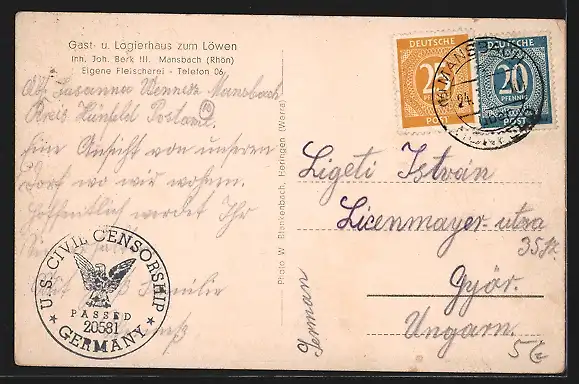 Gast- u. Logierhaus zum Löwen
Inh. Joh. Berk III. Mansbach (Rhön)
Eigene Fleischerei - Telefon 06
Abs. Susanna Mansbach
Kreis Hünfeld Postamt
Eine Ansicht von unseren
Dorf wo wir wohnen.
Hoffentlich werdet Ihr
Familie
U.S. CIVIL CENSORSHIP
PASSED
20581
GERMANY
Photo W. Blankenbach, Heringen (Werra)
DEUTSCHE
25
PFENNIG
POST
DEUTSCHE
20
PFENNIG
POST
MANSBACH
24.
Ligeti István
Licenmayer-utza
35
Győr.
Ungarn.
German